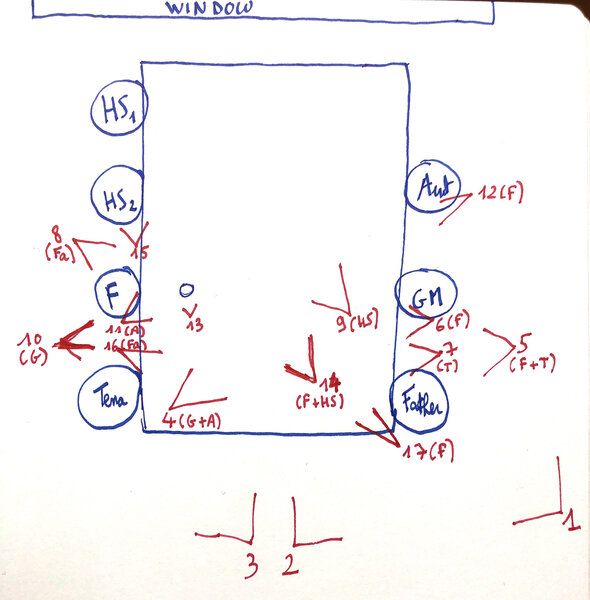 WINDOW
HS1
HS2
Aunt
12(F)
8
(Fa)
15
F
11(A)
13
GM
6(F)
9(HS)
10
(G)
16(Fa)
7
(T)
5
(F+T)
14
(F+HS)
Tena
4(G+A)
Father
17(F)
3
2
1